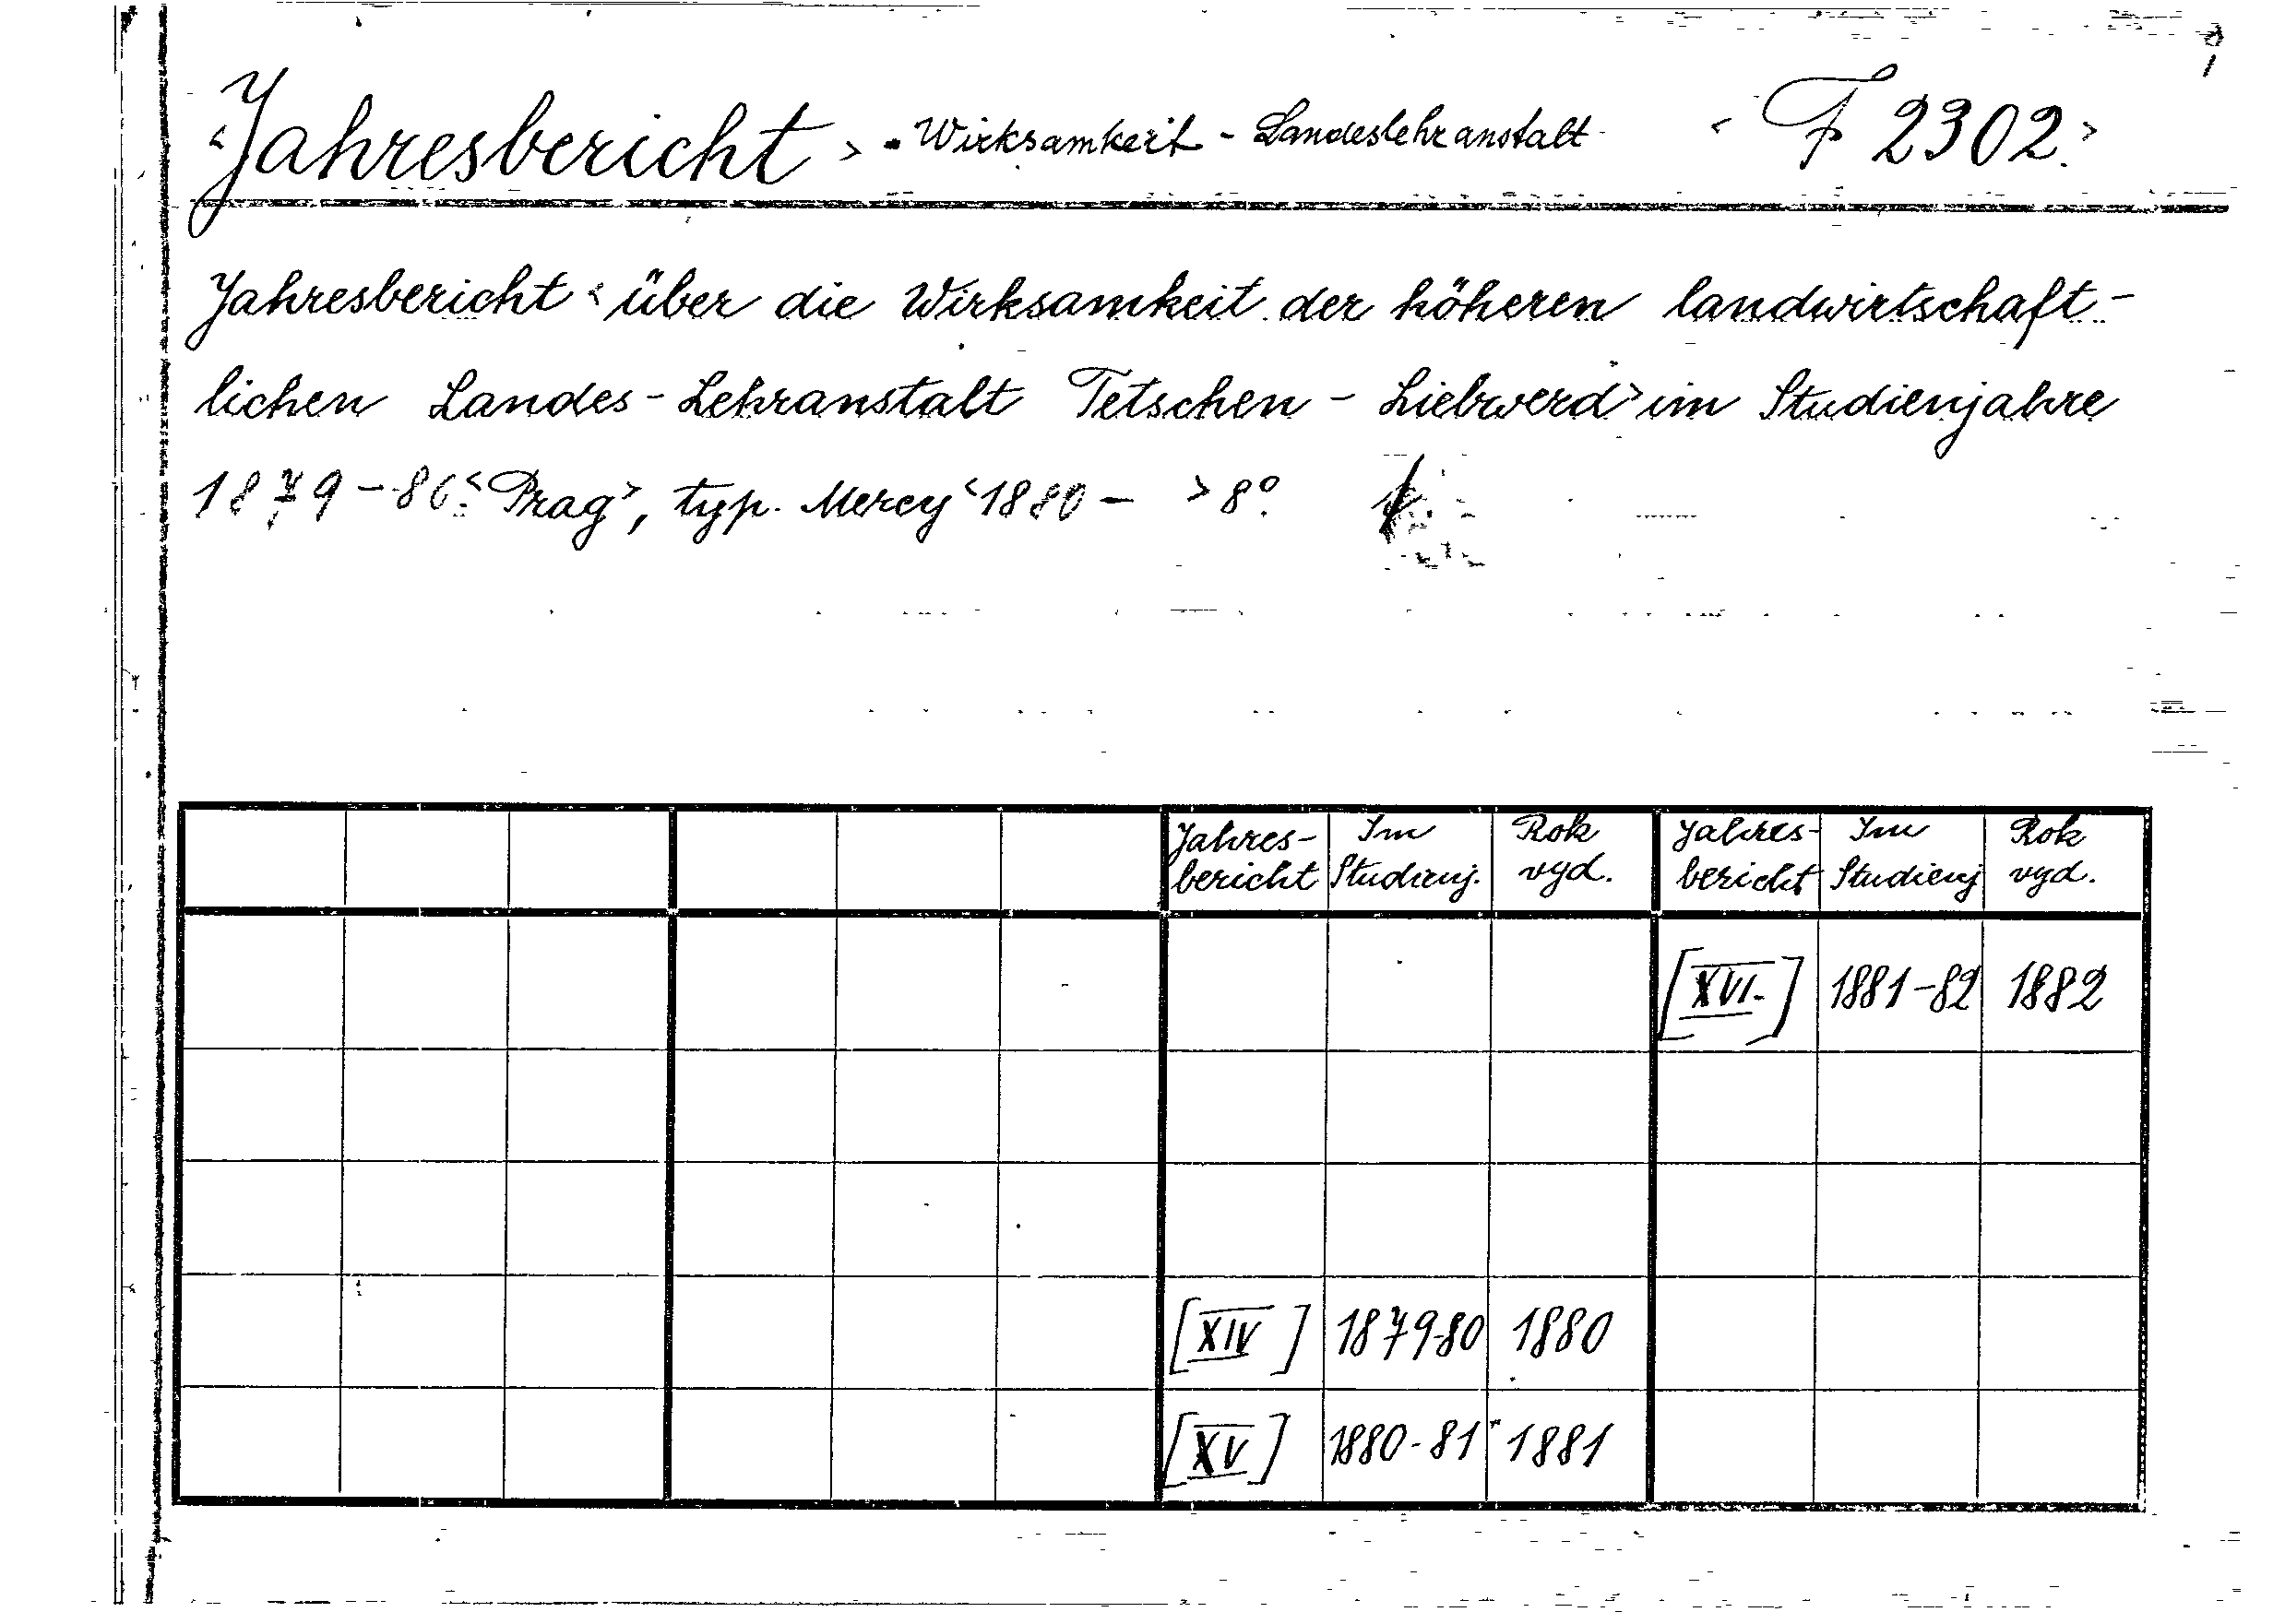 ‹Jahresbericht› - Wirksamkeit - Landeslehranstalt ‹F 2302.›
Jahresbericht ‹ über die Wirksamkeit der höheren landwirtschaft-
lichen Landes - Lehranstalt Tetschen - Liebwerd › im Studienjahre
1879 - 80.‹ Prag ›, typ. Mercy ‹ 1880 - › 8°.
Jahres- Im Rok Jahres- Im Rok
bericht Studienj. vyd. bericht Studienj vyd.
[XVI.] 1881-82 1882
[XIV] 1879-80 1880
[XV] 1880-81 1881